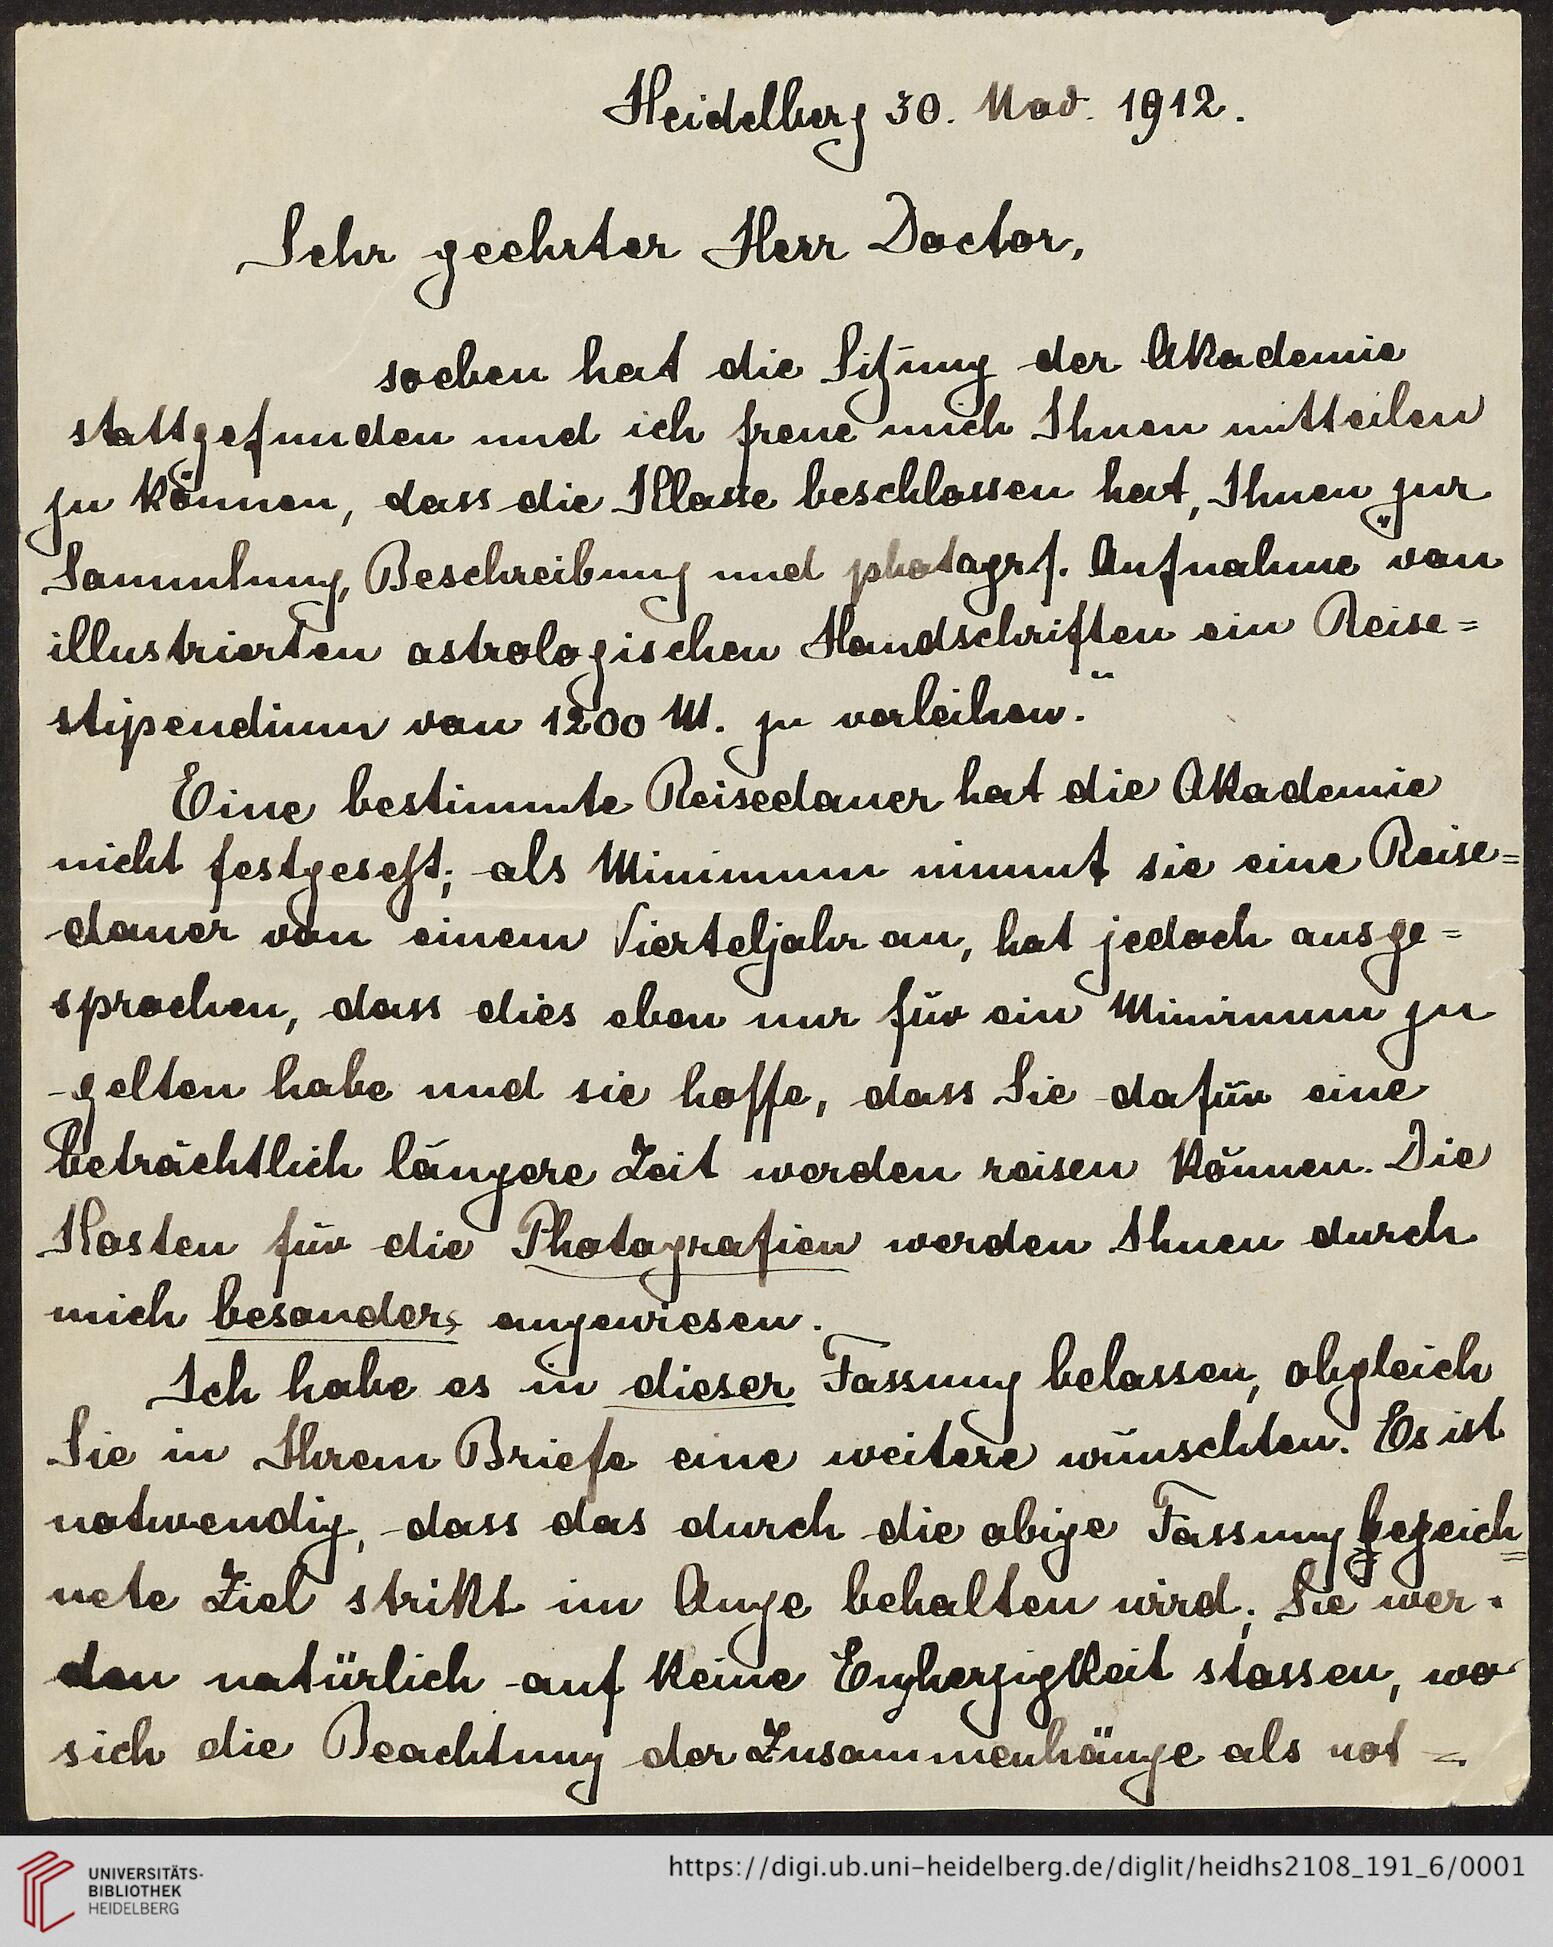 Heidelberg 30. Nov. 1912.
Sehr geehrter Herr Doctor,
soeben hat die Sitzung der Akademie
stattgefunden und ich freue mich Ihnen mitteilen
zu können, dass die Klasse beschlossen hat, Ihnen „zur
Sammlung, Beschreibung und photogrf. Aufnahme von
illustrierten astrologischen Handschriften ein Reise=
stipendium von 1200 M. zu verleihen."
Eine bestimmte Reisedauer hat die Akademie
nicht festgesetzt; als Minimum nimmt sie eine Reise=
dauer von einem Vierteljahr an, hat jedoch ausge=
sprochen, dass dies eben nur für ein Minimum zu
gelten habe und sie hoffe, dass Sie dafür eine
beträchtlich längere Zeit werden reisen können. Die
Kosten für die Photografien werden Ihnen durch
mich besonders angewiesen.
Ich habe es in dieser Fassung belassen, obgleich
Sie in Ihrem Briefe eine weitere wünschten. Es ist
notwendig, dass das durch die obige Fassung bezeich=
nete Ziel strikt im Auge behalten wird; Sie wer-
den natürlich auf keine Engherzigkeit stossen, wo
sich die Beachtung der Zusammenhänge als not=
UNIVERSITÄTS-
BIBLIOTHEK
HEIDELBERG
https://digi.ub.uni-heidelberg.de/diglit/heidhs2108_191_6/0001